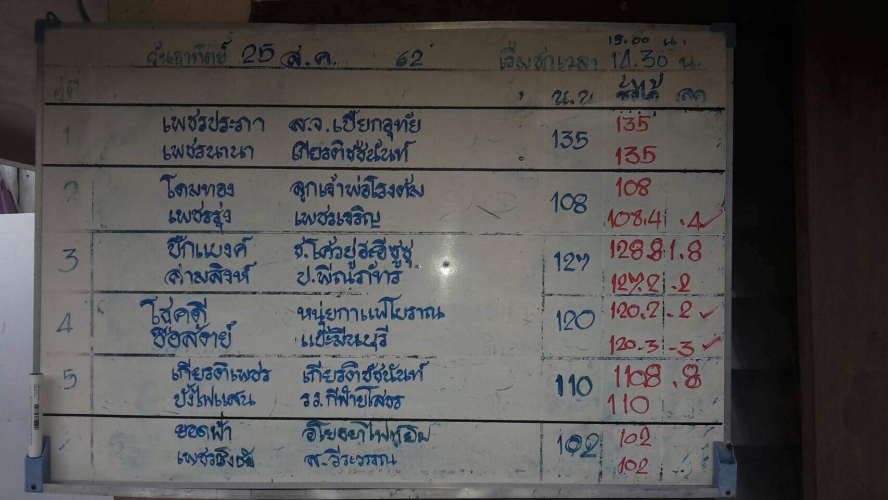 วันอาทิตย์ 25 ส.ค. 62 เริ่มชกเวลา 14.30 น.
15.00 น.
คู่ที่ น.น. ชั่งได้ ลด
1 เพชรประภา ส.จ.เปี๊ยกอุทัย 135 135
เพชรนานา เกียรติชัชนันท์ 135
2 โดมทอง ลูกเจ้าพ่อโรงต้ม 108 108
เพชรรุ่ง เพชรเจริญ 108.4 .4 ✓
3 บิ๊กแบงค์ 127 128.8 1.8
สามสิงห์ ป.พีณภัทร 127.2 .2
4 โชคดี หนุ่ยกาแฟโบราณ 120 120.2 -2 ✓
ซื่อสัตย์ แป๊ะมีนบุรี 120-3 -3 ✓
5 เกียรติเพชร เกียรติชัชนันท์ 110 110.8 .8
บั้งไฟแสน รร.กีฬายโสธร 110
ยอดฟ้า 102 102
ส.วีระวรรณ 102